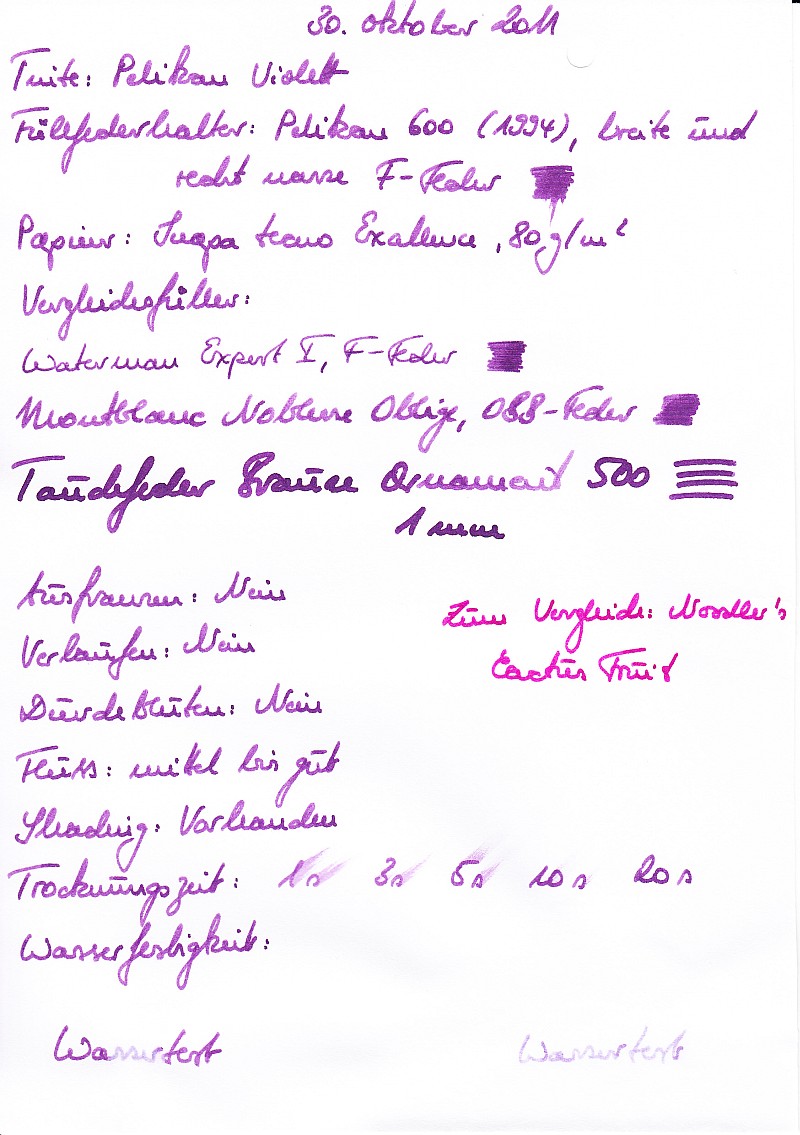 30. Oktober 2011
Tinte: Pelikan Violett
Füllfederhalter: Pelikan 600 (1994), breite und
recht nasse F-Feder
Papier: Inapa tecno Exellence, 80 g/m²
Vergleichsfüller:
Waterman Expert I, F-Feder
Montblanc Noblesse Oblige, OBB-Feder
Tauchfeder Brause Ornament 500
1 mm
Ausfransen: Nein
Zum Vergleich: Noodler's
Verlaufen: Nein
Cactus Fruit
Durchbluten: Nein
Fluss: mittel bis gut
Shading: Vorhanden
Trocknungszeit: 1s 3s 5s 10s 20s
Wasserfestigkeit:
Wassertest Wassertest